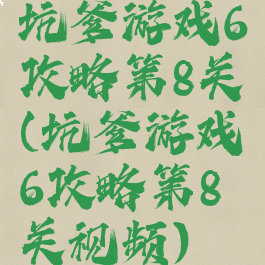 坑爹游戏6
攻略第8关
(坑爹游戏
6攻略第8
关视频)